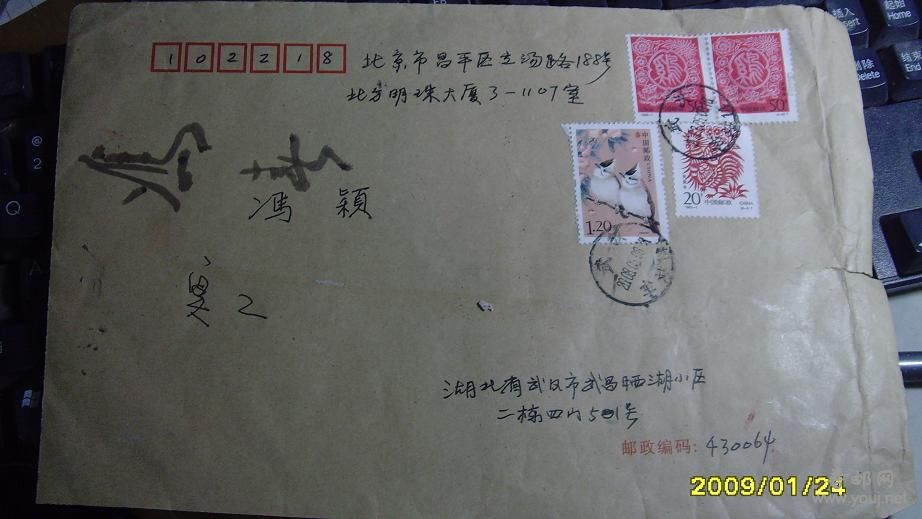 102218
北京市昌平区立汤路188号
北方明珠大厦3-1107室
冯颖
50
50
20
中国邮政
CHINA
中国邮政
CHINA
1.20
湖北省武汉市武昌晒湖小区
二栋四门501号
邮政编码: 430064
2009/01/24
www.youj.net
插入
Insert
起始
Home
删除
Delete
结束
End
@
2
Q